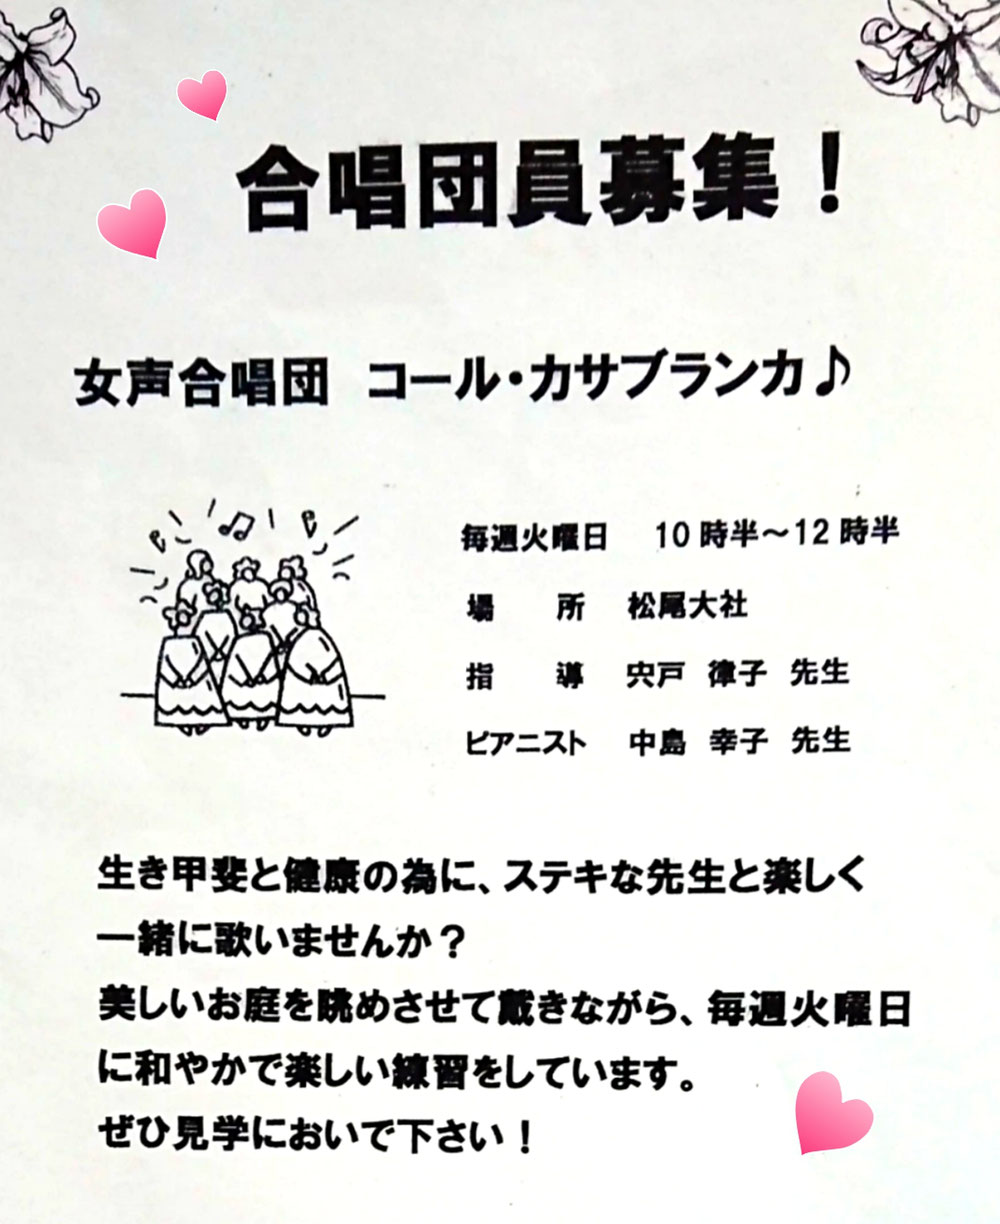 合唱団員募集！
女声合唱団　コール・カサブランカ♪
毎週火曜日　10時半～12時半
場　所　松尾大社
指　導　宍戸 律子 先生
ピアニスト　中島 幸子 先生
生き甲斐と健康の為に、ステキな先生と楽しく
一緒に歌いませんか？
美しいお庭を眺めさせて戴きながら、毎週火曜日
に和やかで楽しい練習をしています。
ぜひ見学においで下さい！